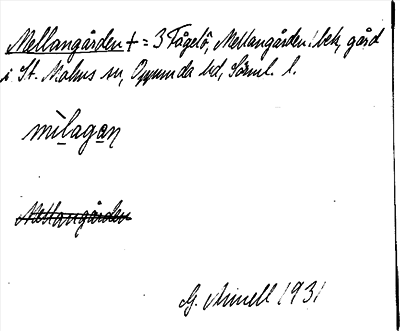 Mellangården + = 3 Fågelö, Mellangården! bek, gård
i St. Malms sn, Oppunda hd, Sörml. l.
mìlagaŋ
Mellangården
G. Minell 1931